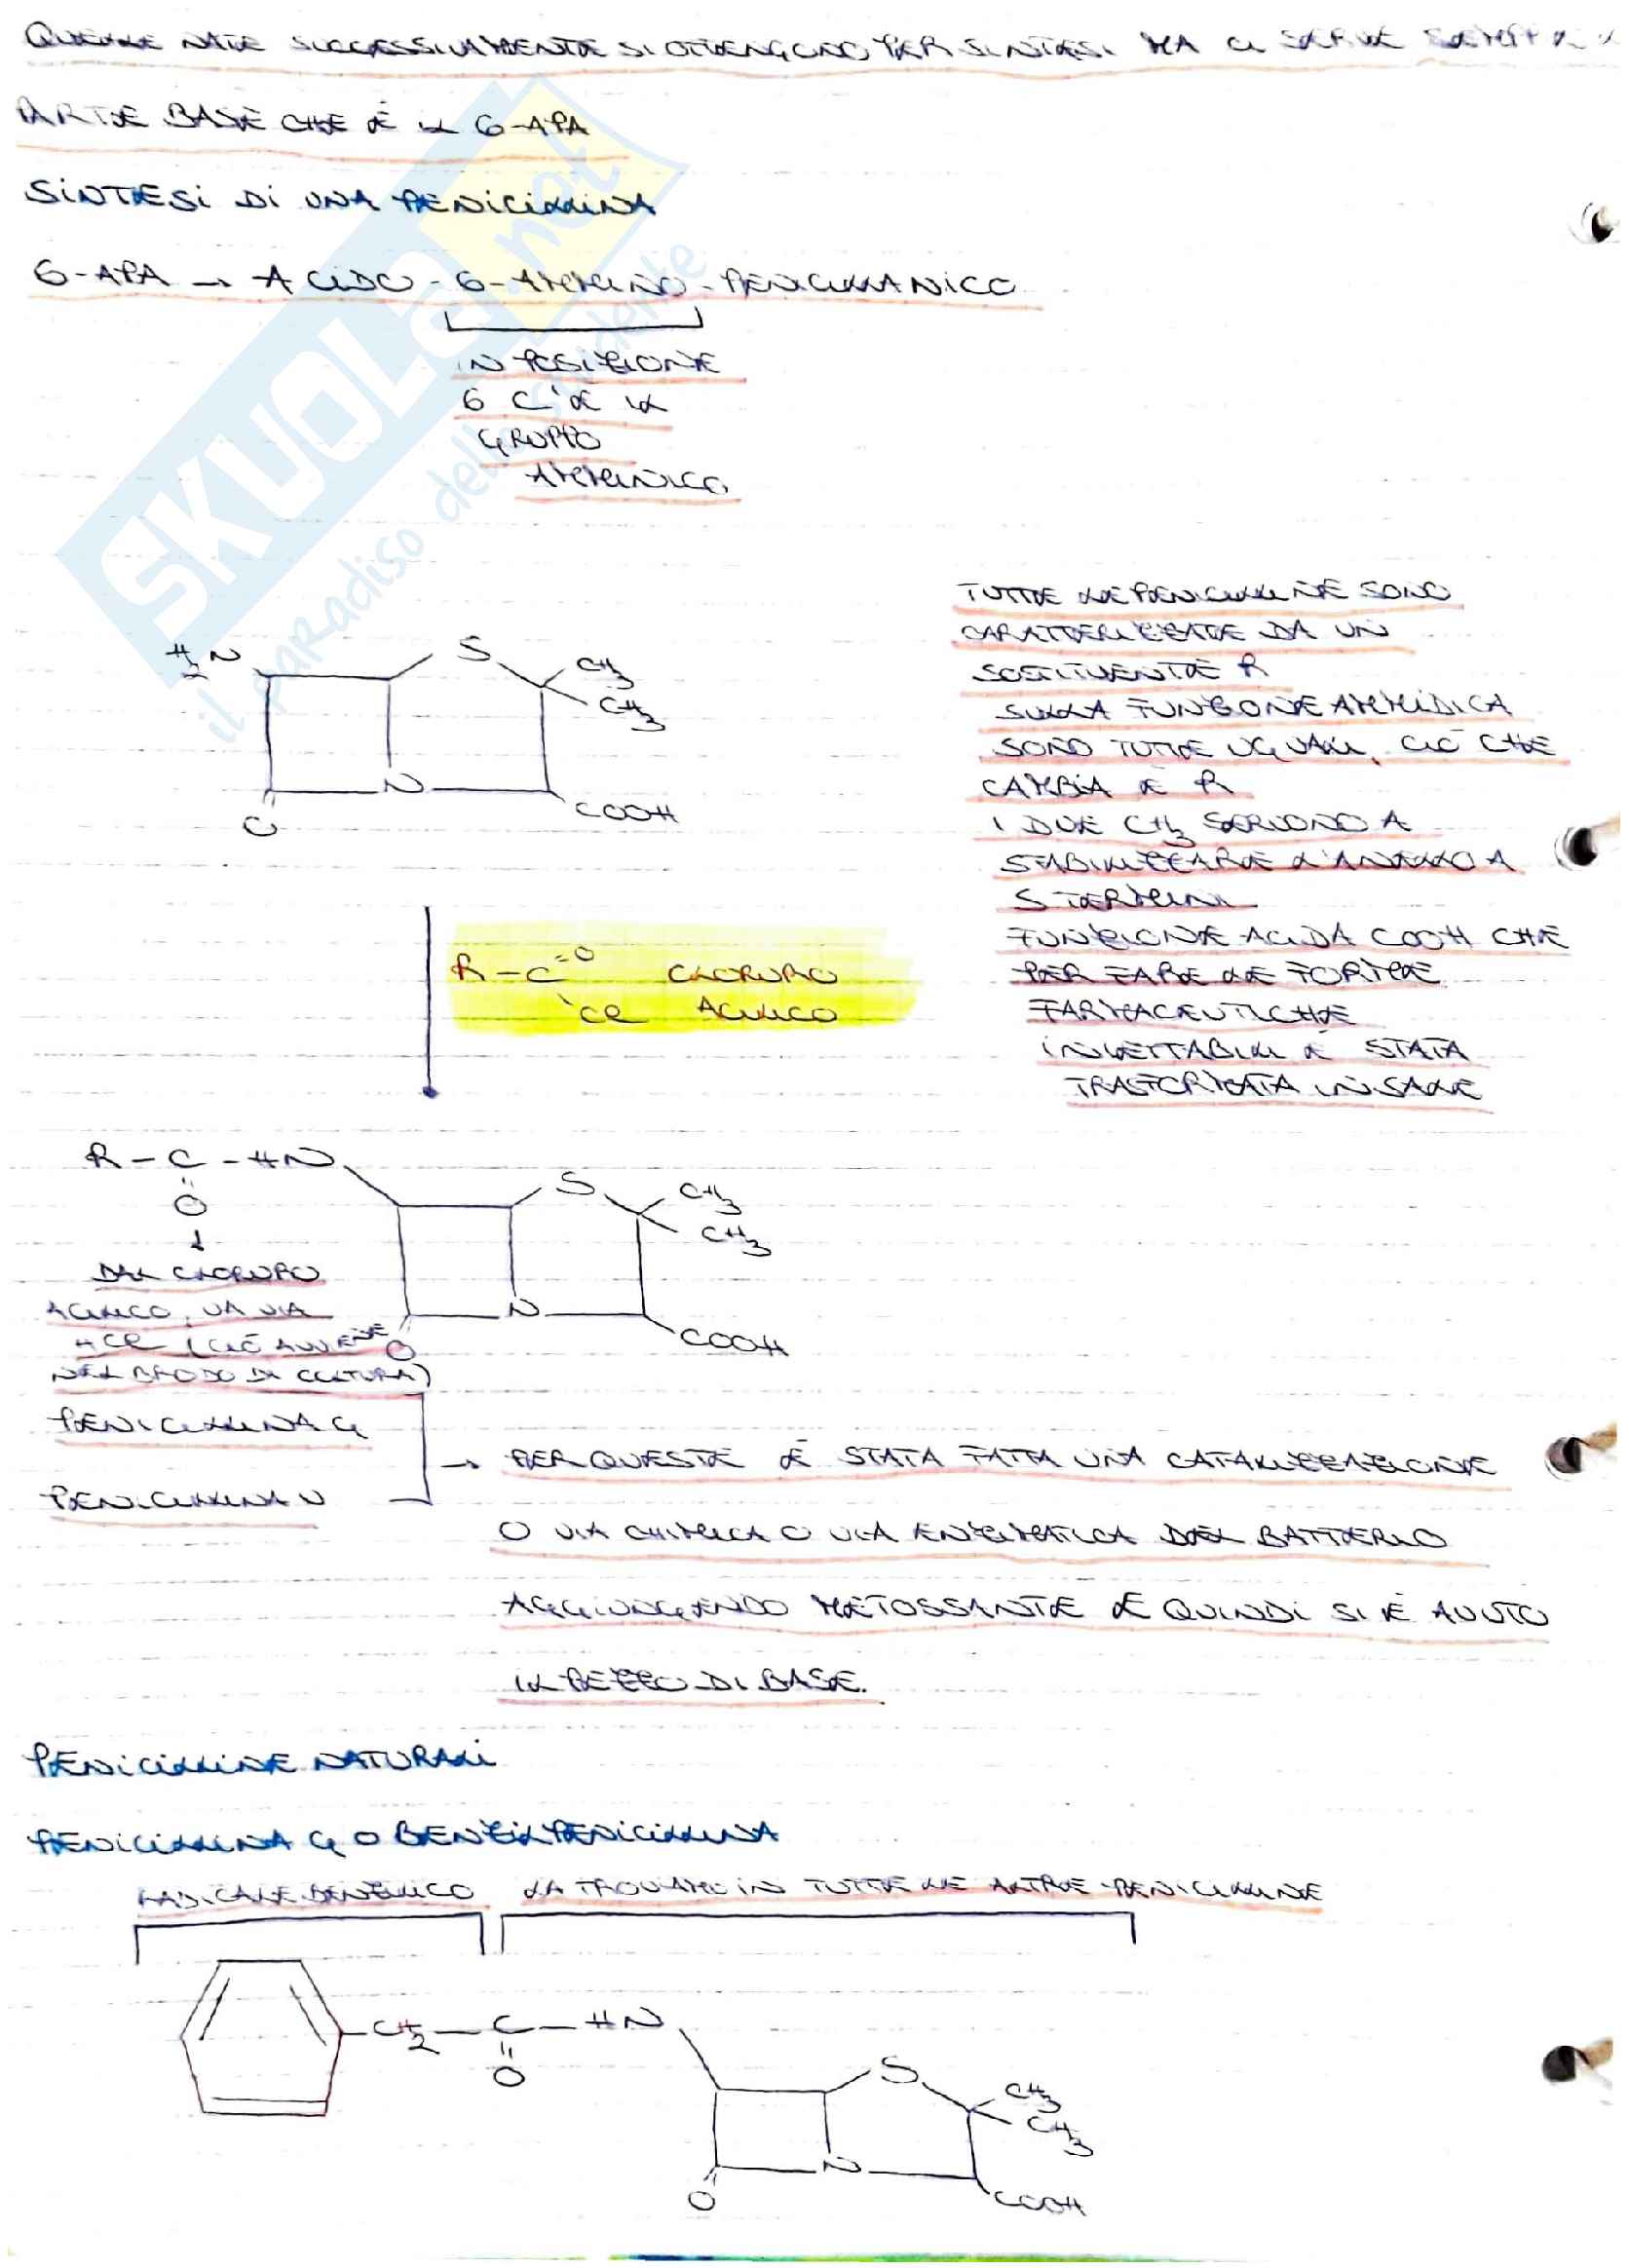 QUELLE NATE SUCCESSIVAMENTE SI OTTENGONO PER SINTESI MA CI SERVE SEMPRE LA
PARTE BASE CHE È IL 6-APA
SINTESI DI UNA PENICILLINA
6-APA → ACIDO-6-AMMINO-PENICILLANICO
IN POSIZIONE
6 C'È IL
GRUPPO
AMMINICO
H2N
S
CH3
CH3
N
O
COOH
TUTTE LE PENICILLINE SONO
CARATTERIZZATE DA UN
SOSTITUENTE R
SULLA FUNZIONE AMMIDICA
SONO TUTTE UGUALI, CIÒ CHE
CAMBIA È R
I DUE CH3 SERVONO A
STABILIZZARE L'ANELLO A
5 TERMINI
FUNZIONE ACIDA COOH CHE
PER FARE LE FORME
FARMACEUTICHE
INIETTABILI È STATA
TRASFORMATA IN SALE
R-C=O CLORURO
Cl ACILICO
R-C-HN
O
S
CH3
CH3
N
O
COOH
DAL CLORURO
ACILICO, VA VIA
HCl (CIÒ AVVIENE
NEL BRODO DI CULTURA)
PENICILLINA G
PENICILLINA V
→ PER QUESTE È STATA FATTA UNA CATALIZZAZIONE
O VIA CHIMICA O VIA ENZIMATICA DEL BATTERIO
AGGIUNGENDO METOSSANTE E QUINDI SI È AVUTO
IL PEZZO DI BASE.
PENICILLINE NATURALI
PENICILLINA G O BENZILPENICILLINA
RADICALE BENZILICO LA TROVIAMO IN TUTTE LE ALTRE PENICILLINE
CH2-C-HN
O
S
CH3
CH3
N
O
COOH
SKUOLA.net
il paradiso dello studente